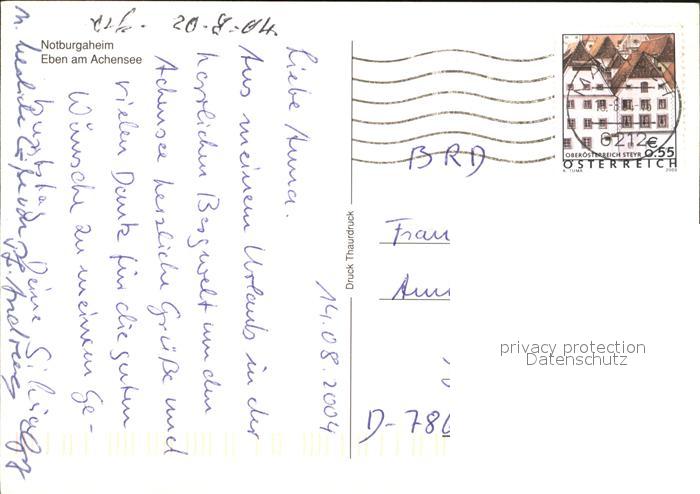 erh. 20-8-04.
Notburgaheim
Eben am Achensee
14.08.2004
Liebe Anna.
Aus meinem Urlaub in der
herrlichen Bergwelt um den
Achensee herzliche Grüße und
vielen Dank für die guten
Wünsche zu meinem Ge-
burtstag Deine
Druck Thaurdruck
BRD
Frau
D-78
6212
OBERÖSTERREICH STEYR €0.55
ÖSTERREICH
A. TUMA 2003
privacy protection
Datenschutz